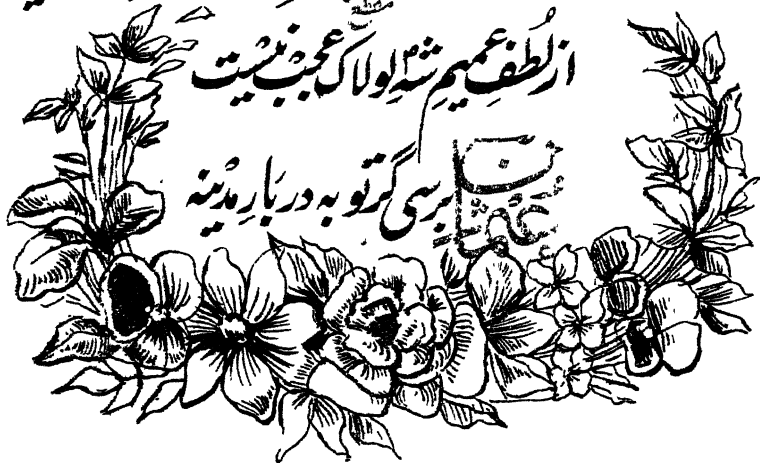 از لطفِ عمیمِ شہِ لولاک عجب نیست
برسی گر تو بہ دربارِ مدینہ